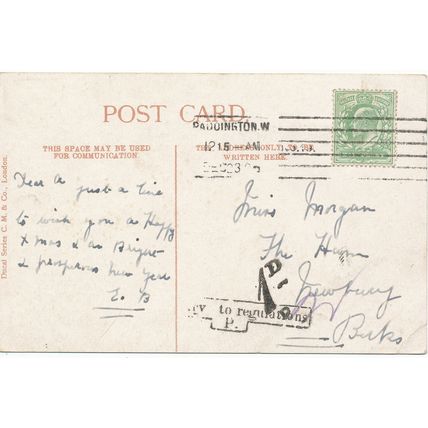 POST CARD
THIS SPACE MAY BE USED
FOR COMMUNICATION.
Dear A just a line
to wish you a Happy
Xmas & an Bright
& prosperous New Year
E. B
PADDINGTON.W
12 15 AM
DEC 23
ONLY TO BE
WRITTEN HERE.
Miss Morgan
The
Newbury
Berks
to regulations
P.
Ducal Series C. M. & Co., London.